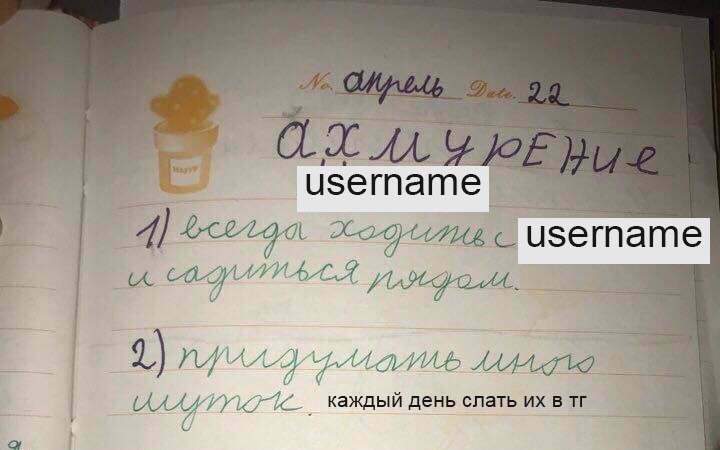 No. апрель Date. 22
ахмурение
username
1) всегда ходить с username
и садиться рядом.
2) придумать много
шуток. каждый день слать их в тг